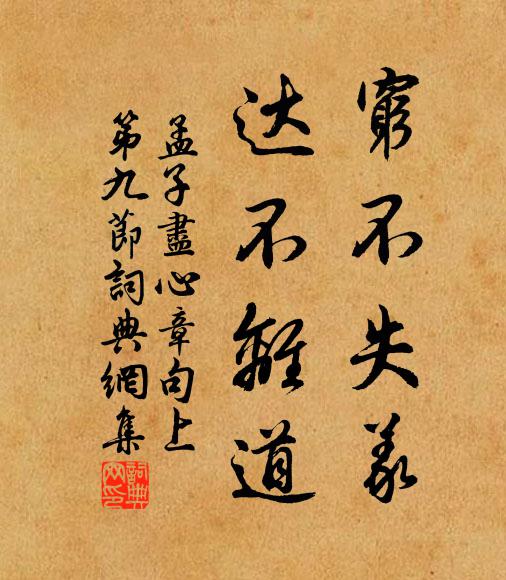 窮不失義
达不離道
孟子盡心章句上
第九節詞典網集
詞典
網印